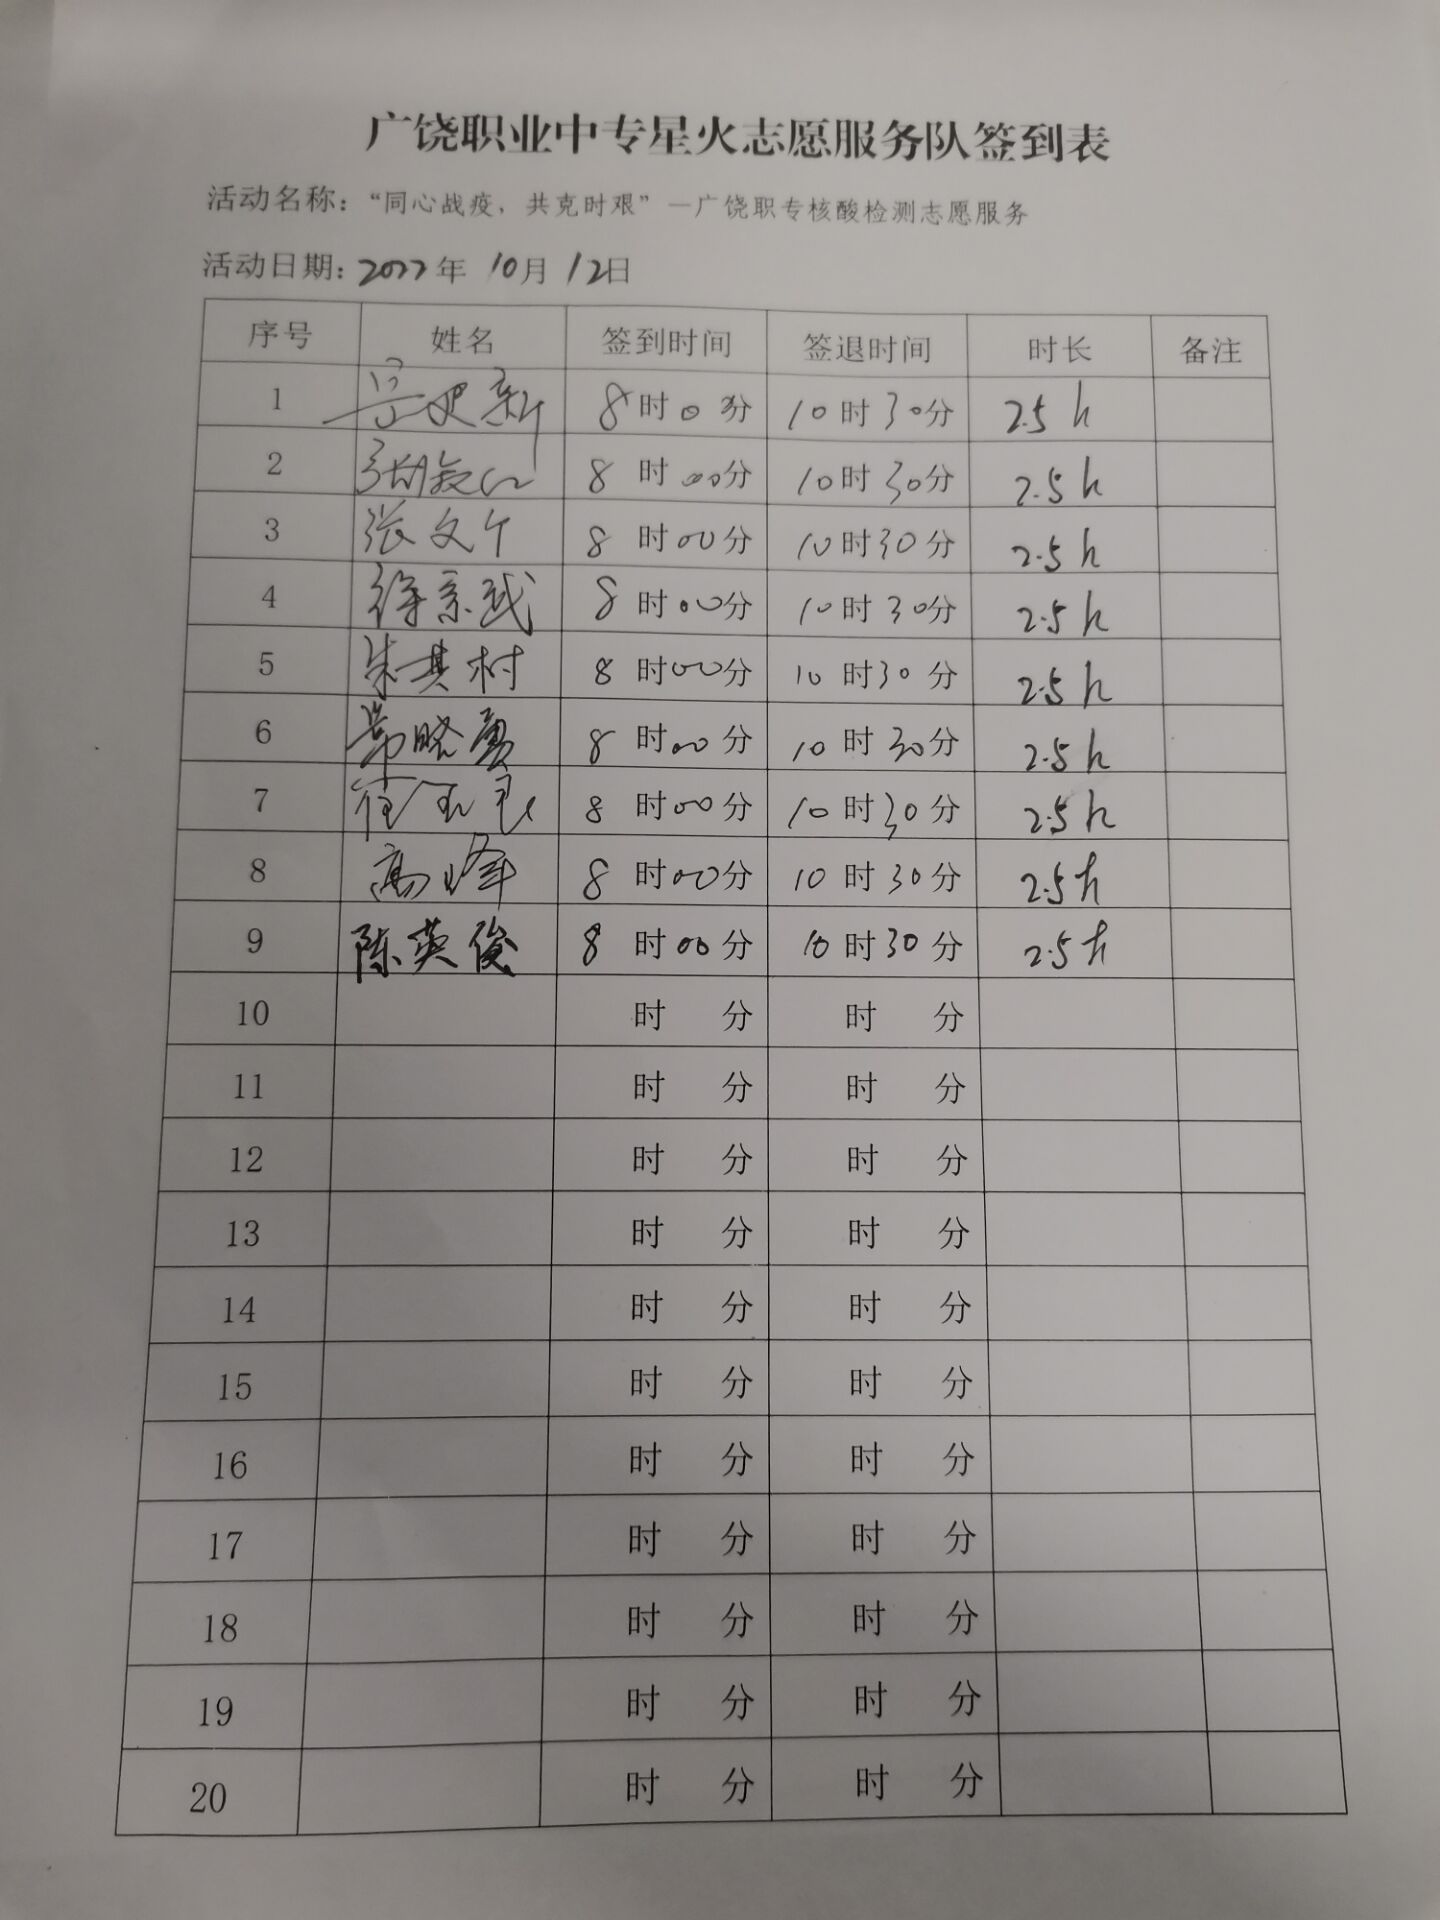 广饶职业中专星火志愿服务队签到表
活动名称：“同心战疫、共克时艰”—广饶职专核酸检测志愿服务
活动日期：2022年 10月 12日
序号 姓名 签到时间 签退时间 时长 备注
1 8时00分 10时30分 2.5h
2 8时00分 10时30分 2.5h
3 张文 8时00分 10时30分 2.5h
4 8时00分 10时30分 2.5h
5 朱其村 8时00分 10时30分 2.5h
6 8时00分 10时30分 2.5h
7 8时00分 10时30分 2.5h
8 高峰 8时00分 10时30分 2.5h
9 陈英俊 8时00分 10时30分 2.5h
10 时 分 时 分
11 时 分 时 分
12 时 分 时 分
13 时 分 时 分
14 时 分 时 分
15 时 分 时 分
16 时 分 时 分
17 时 分 时 分
18 时 分 时 分
19 时 分 时 分
20 时 分 时 分